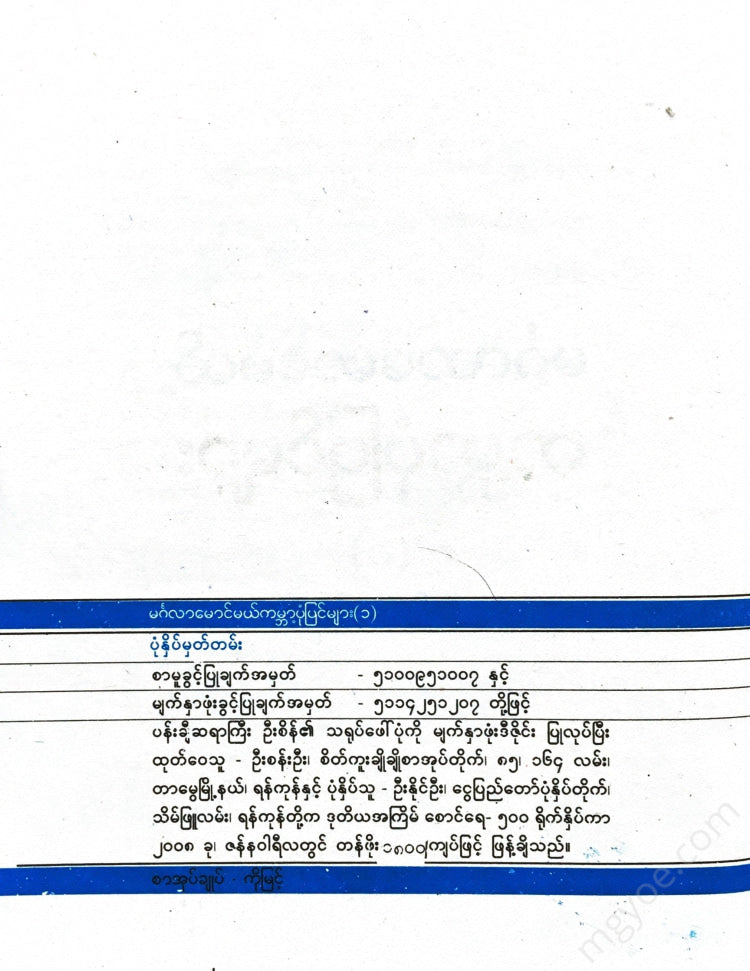 မင်္ဂလာမောင်မယ်ကမ္ဘာ့ပုံပြင်များ(၁)
ပုံနှိပ်မှတ်တမ်း
စာမူခွင့်ပြုချက်အမှတ် - ၅၁၀၀၉၅၁၀၀၇ နှင့်
မျက်နှာဖုံးခွင့်ပြုချက်အမှတ် - ၅၁၁၄၂၅၁၂၀၇ တို့ဖြင့်
ပန်းချီဆရာကြီး ဦးစိန်၏ သရုပ်ဖော်ပုံကို မျက်နှာဖုံးဒီဇိုင်း ပြုလုပ်ပြီး
ထုတ်ဝေသူ - ဦးစန်းဦး၊ စိတ်ကူးချိုချိုစာအုပ်တိုက်၊ ၈၅၊ ၁၆၄ လမ်း၊
တာမွေမြို့နယ်၊ ရန်ကုန်နှင့် ပုံနှိပ်သူ - ဦးနိုင်ဦး၊ ငွေပြည်တော်ပုံနှိပ်တိုက်၊
သိမ်ဖြူလမ်း၊ ရန်ကုန်တို့က ဒုတိယအကြိမ် စောင်ရေ- ၅၀၀ ရိုက်နှိပ်ကာ
၂၀၀၈ ခု၊ ဇန်နဝါရီလတွင် တန်ဖိုး ၁၈၀၀/ကျပ်ဖြင့် ဖြန့်ချိသည်။
စာအုပ်ချုပ် - ကိုမြင့်
mgyoe.com